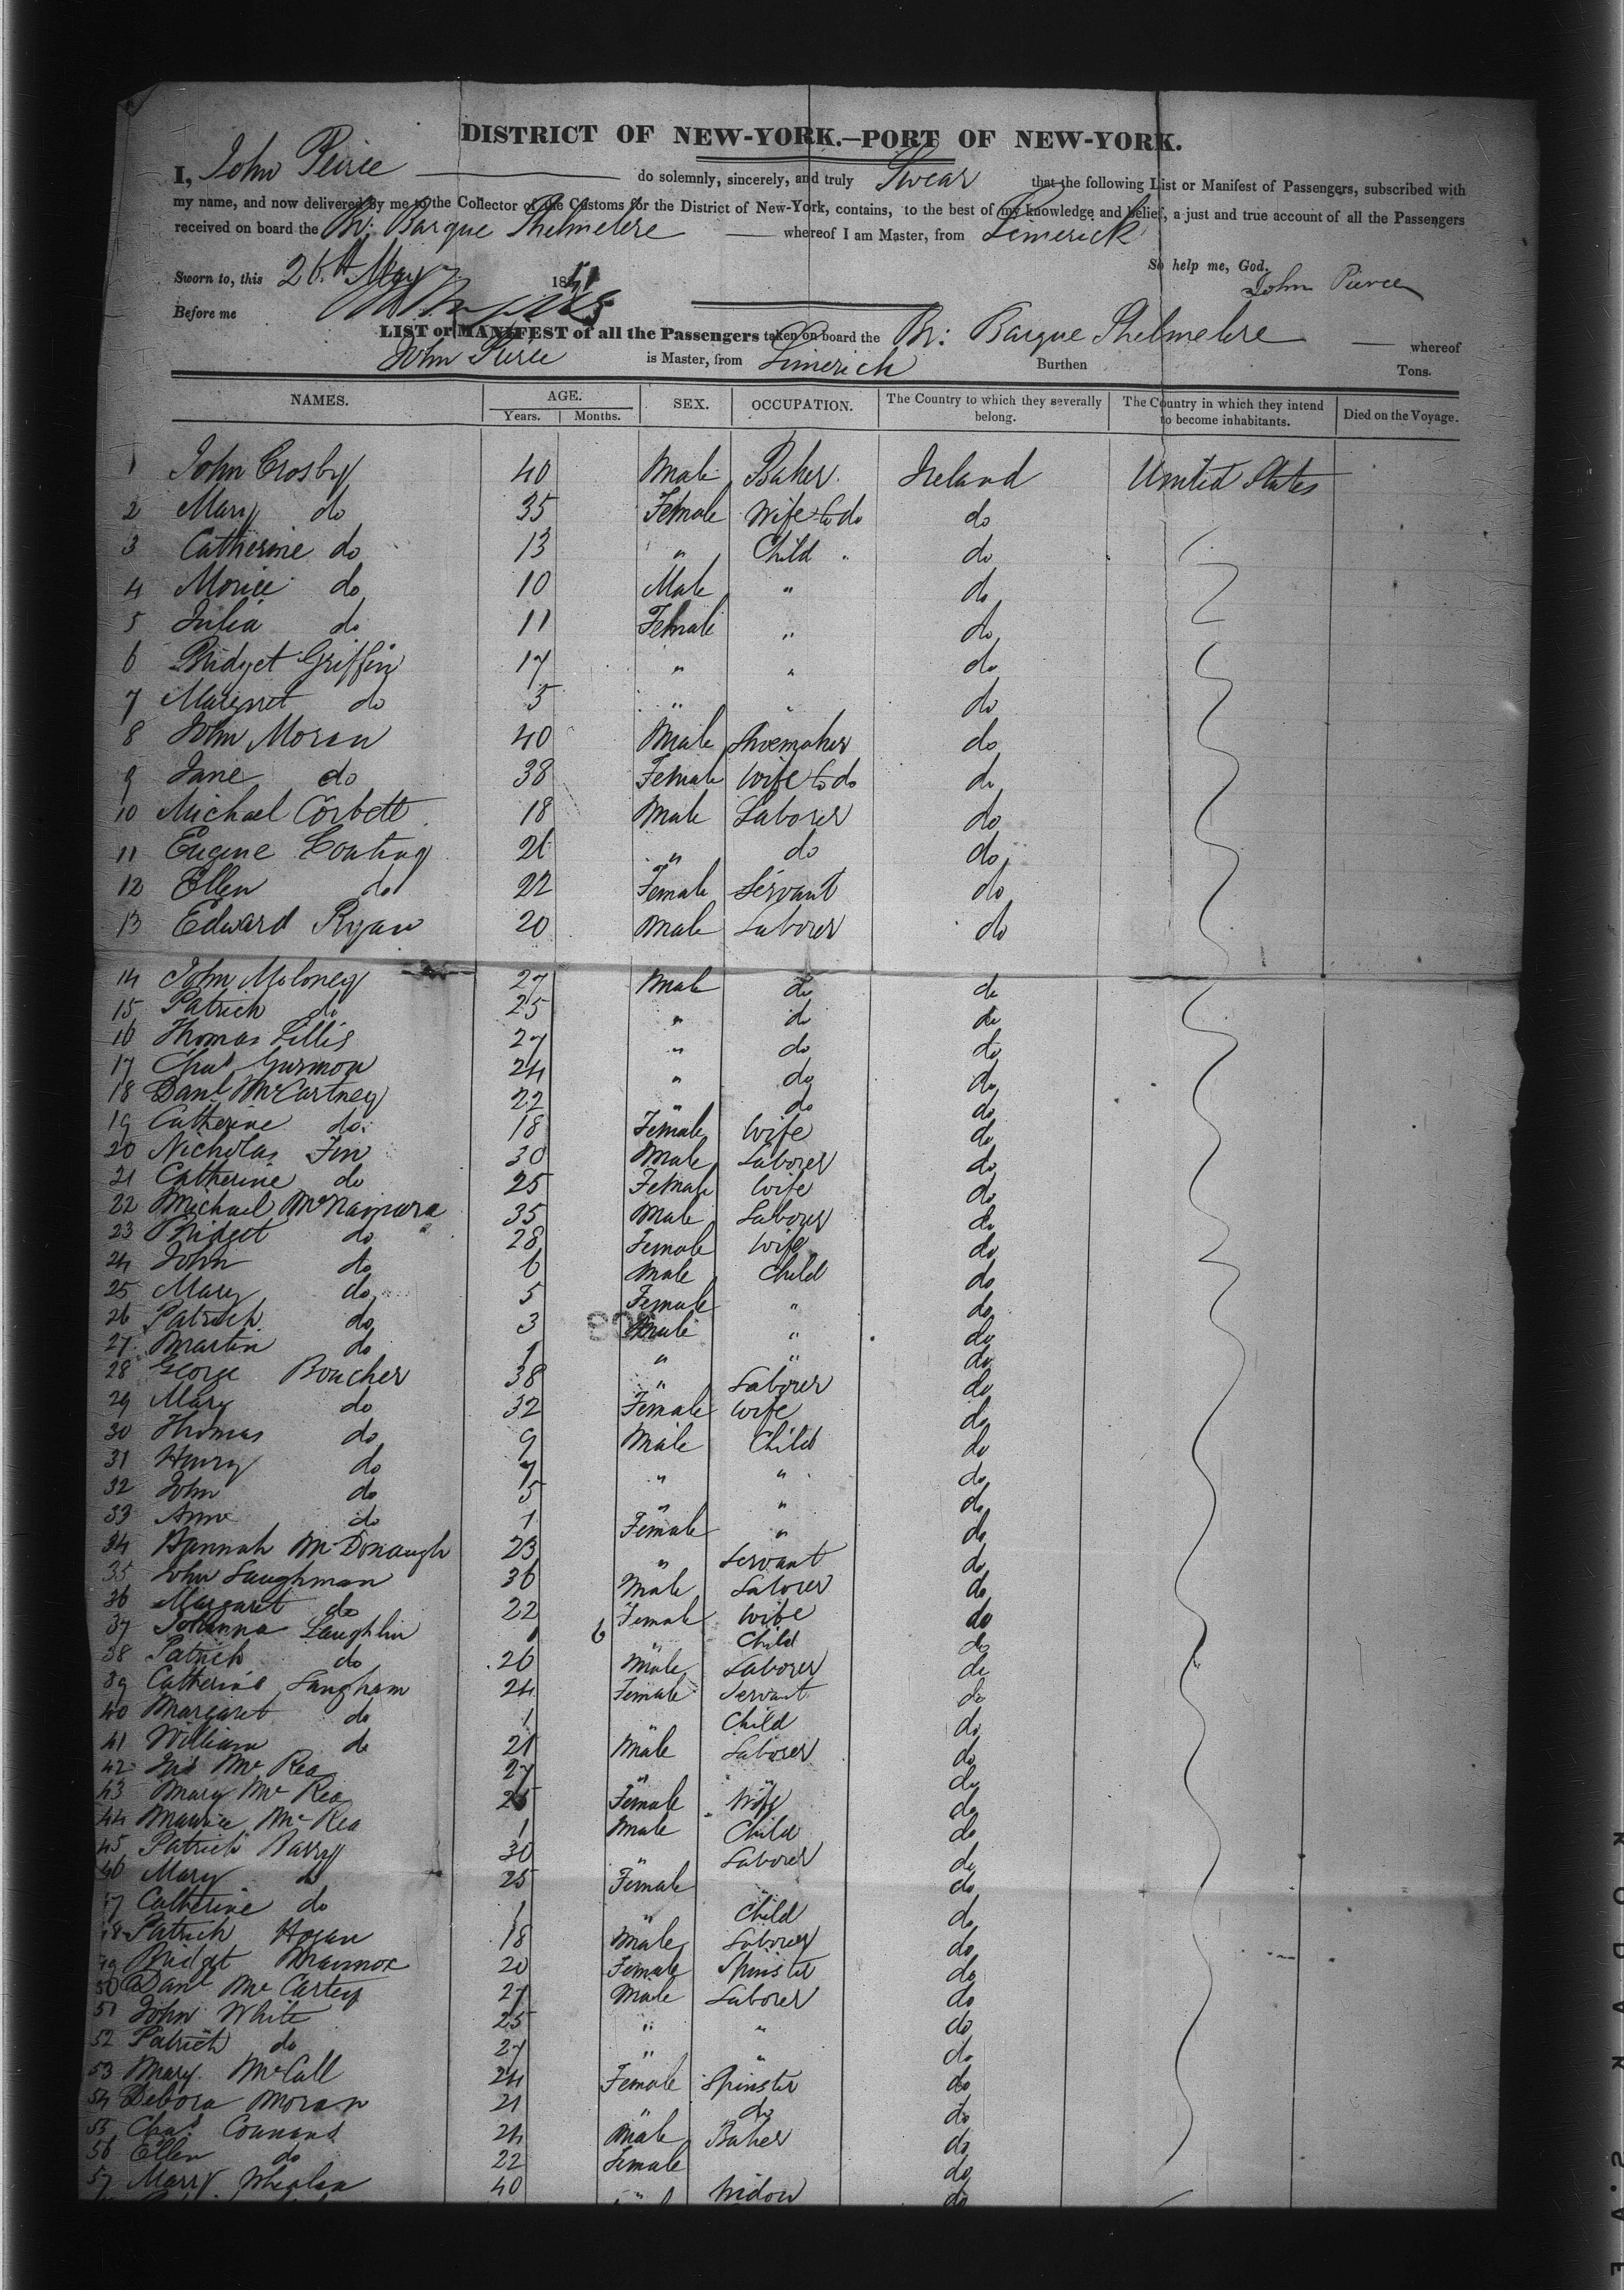 DISTRICT OF NEW-YORK.—PORT OF NEW-YORK.
I, John Peirce do solemnly, sincerely, and truly Swear that the following List or Manifest of Passengers, subscribed with
my name, and now delivered by me to the Collector of the Customs for the District of New-York, contains, to the best of my knowledge and belief, a just and true account of all the Passengers
received on board the Br: Barque Shelmelere whereof I am Master, from Limerick
So help me, God.
Sworn to, this 26th May 1851 John Pierce
Before me
LIST or MANIFEST of all the Passengers taken on board the Br: Barque Shelmelere whereof
John Peirce is Master, from Limerick Burthen Tons.
NAMES. AGE. SEX. OCCUPATION. The Country to which they severally belong. The Country in which they intend to become inhabitants. Died on the Voyage.
Years. Months.
1 John Crosby 40 Male Baker Ireland United States
2 Mary do 35 Female Wife to do do
3 Catherine do 13 " Child do
4 Morice do 10 Male " do
5 Julia do 11 Female " do
6 Bridget Griffin 17 " " do
7 Margret do 5 " " do
8 John Moran 40 Male Shoemaker do
9 Jane do 38 Female Wife to do do
10 Michael Corbett 18 Male Laborer do
11 Eugene 21 " do do
12 Ellen do 22 Female Servant do
13 Edward Ryan 20 Male Laborer do
14 John Moloney 27 Male do do
15 Patrick do 25 " do do
16 Thomas Lillis 27 " do do
17 Chas Gurmon 24 " do do
18 Danl McCartney 22 " do do
19 Catherine do 18 Female Wife do
20 Nicholas Fin 30 Male Laborer do
21 Catherine do 25 Female Wife do
22 Michael McNamara 35 Male Laborer do
23 Bridget do 28 Female Wife do
24 John do 6 Male Child do
25 Mary do 5 Female " do
26 Patrick do 3 Male " do
27 Martin do 1 " " do
28 George Boucher 38 " Laborer do
29 Mary do 32 Female Wife do
30 Thomas do 9 Male Child do
31 Henry do 7 " " do
32 John do 5 " " do
33 Anne do 1 Female " do
34 Hannah McDonaugh 23 " Servant do
35 John Laughman 36 Male Laborer do
36 Margaret do 22 Female Wife do
37 Johanna Laughlin 6 " Child do
38 Patrick do 26 Male Laborer do
39 Catherine Langham 24 Female Servant do
40 Margaret do 1 " Child do
41 William do 21 Male Laborer do
42 Jas McRea 27 " " do
43 Mary McRea 25 Female Wife do
44 Maurice McRea 1 Male Child do
45 Patrick Barry 30 " Laborer do
46 Mary do 25 Female do
47 Catherine do 1 " Child do
48 Patrick Hogan 18 Male Laborer do
49 Bridget Mannox 20 Female Spinster do
50 Danl McCartey 27 Male Laborer do
51 John White 25 " " do
52 Patrick do 27 " " do
53 Mary McCall 24 Female Spinster do
54 Debora Moran 21 " do do
55 Chas Connors 24 Male Baker do
56 Ellen do 22 Female do
57 Mary Whelan 40 " Widow do